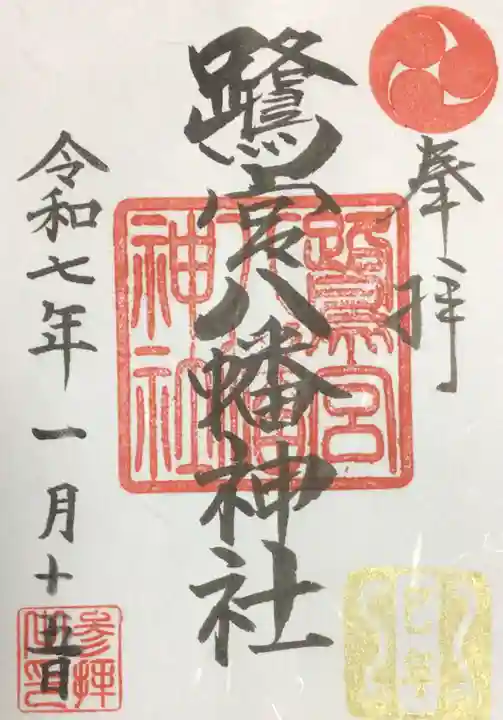 奉拝
鷺宮八幡神社
令和七年一月十五日
鷺宮八幡神社
参拝
巳年